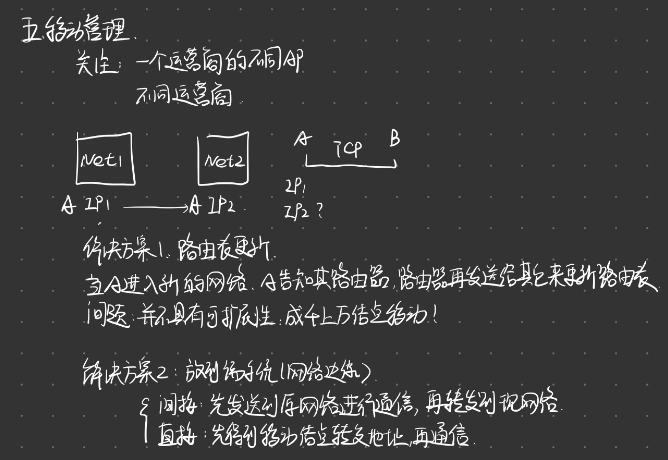 五.移动管理.
关注: 一个运营商的不同AP
不同运营商.
Net1 Net2 A TCP B
A IP1 → A IP2. IP1
IP2?
解决方案1. 路由表更新.
当A进入新的网络. A告知其路由器, 路由器再发送给其它来更新路由表
问题: 并不具有可扩展性. 成千上万结点移动!
解决方案2: 放到端系统(网络边缘)
间接: 先发送到原网络进行通信, 再转发到现网络.
直接: 先得到移动结点转交地址, 再通信.